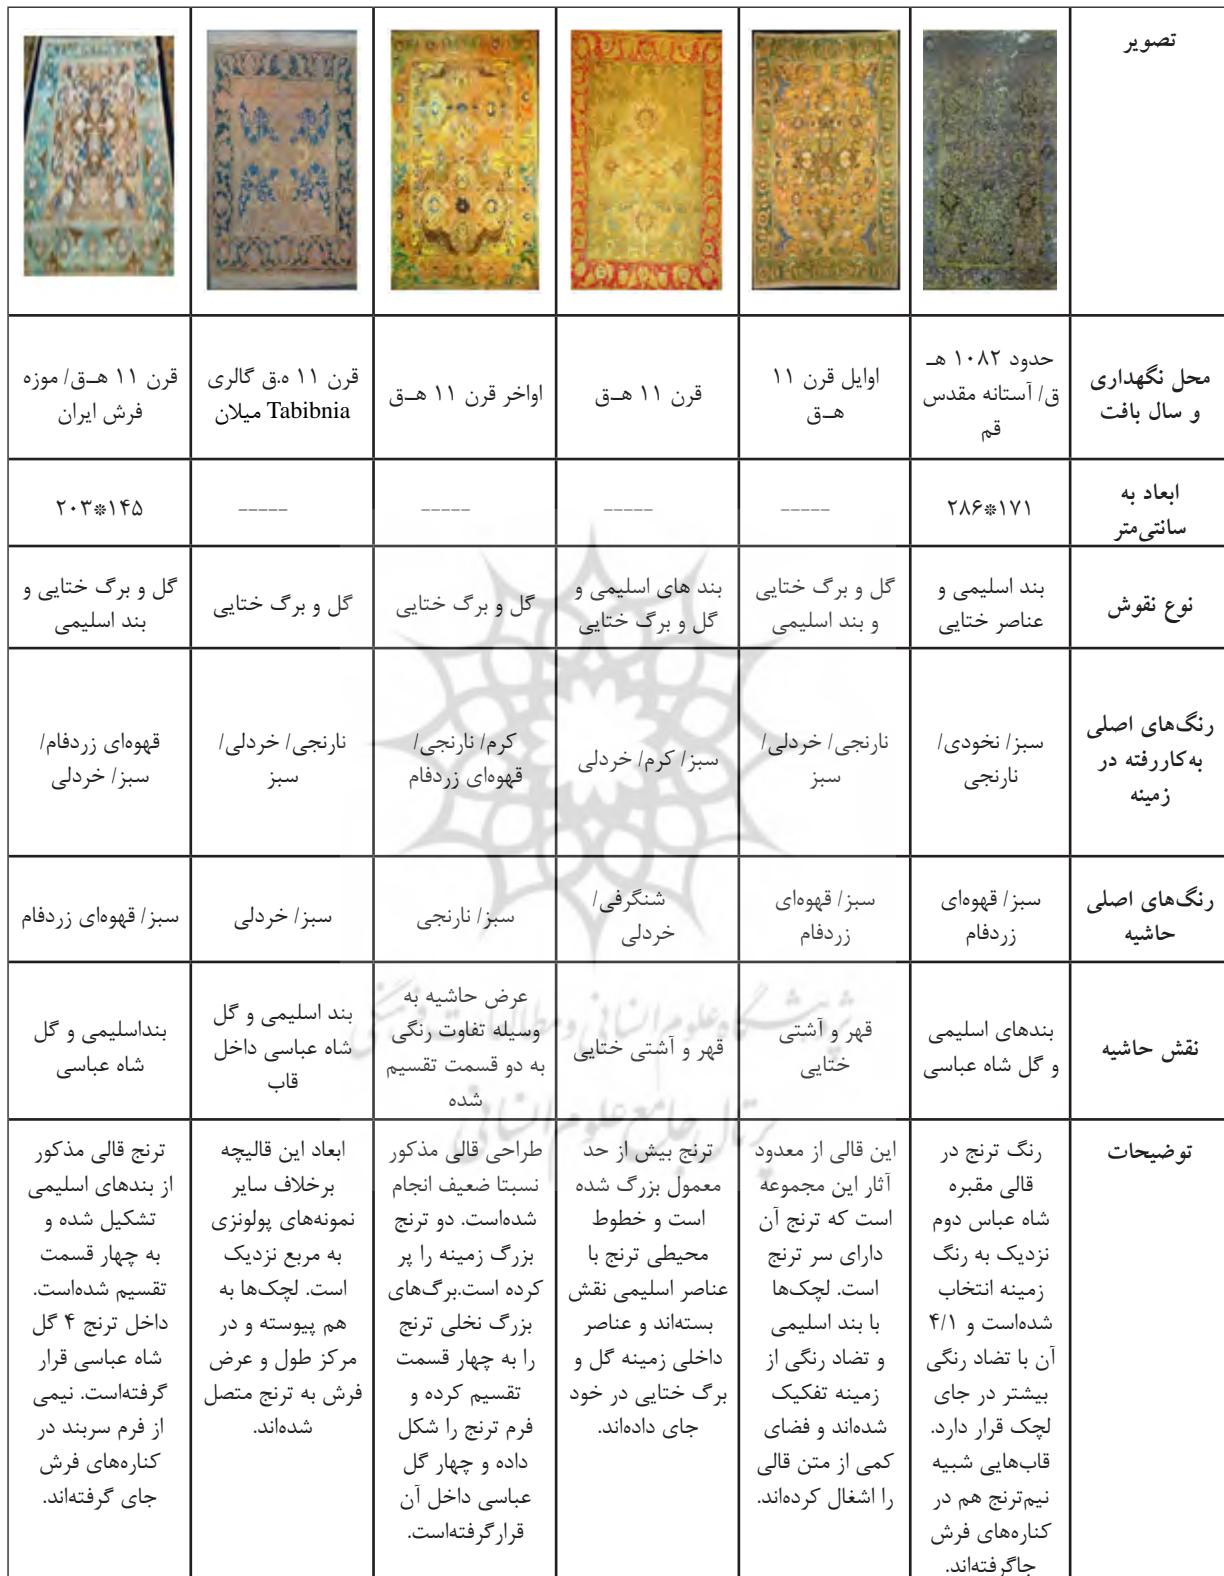 تصویر
محل نگهداری
و سال بافت
حدود ۱۰۸۲ هـ
ق/ آستانه مقدس
قم
اوایل قرن ۱۱
هـق
قرن ۱۱ هـق
اواخر قرن ۱۱ هـق
قرن ۱۱ ه.ق گالری
Tabibnia میلان
قرن ۱۱ هـق/ موزه
فرش ایران
ابعاد به
سانتی‌متر
۲۸۶*۱۷۱
-----
-----
-----
-----
۲۰۳*۱۴۵
نوع نقوش
بند اسلیمی و
عناصر ختایی
گل و برگ ختایی
و بند اسلیمی
بند های اسلیمی و
گل و برگ ختایی
گل و برگ ختایی
گل و برگ ختایی
گل و برگ ختایی و
بند اسلیمی
رنگ‌های اصلی
به‌کاررفته در
زمینه
سبز/ نخودی/
نارنجی
نارنجی/ خردلی/
سبز
سبز/ کرم/ خردلی
کرم/ نارنجی/
قهوه‌ای زردفام
نارنجی/ خردلی/
سبز
قهوه‌ای زردفام/
سبز/ خردلی
رنگ‌های اصلی
حاشیه
سبز/ قهوه‌ای
زردفام
سبز/ قهوه‌ای
زردفام
شنگرفی/
خردلی
سبز/ نارنجی
سبز/ خردلی
سبز/ قهوه‌ای زردفام
نقش حاشیه
بندهای اسلیمی
و گل شاه عباسی
قهر و آشتی
ختایی
قهر و آشتی ختایی
عرض حاشیه به
وسیله تفاوت رنگی
به دو قسمت تقسیم
شده
بند اسلیمی و گل
شاه عباسی داخل
قاب
بنداسلیمی و گل
شاه عباسی
توضیحات
رنگ ترنج در
قالی مقبره
شاه عباس دوم
نزدیک به رنگ
زمینه انتخاب
شده‌است و ۴/۱
آن با تضاد رنگی
بیشتر در جای
لچک قرار دارد.
قاب‌هایی شبیه
نیم‌ترنج هم در
کناره‌های فرش
جاگرفته‌اند.
این قالی از معدود
آثار این مجموعه
است که ترنج آن
دارای سر ترنج
است. لچک‌ها
با بند اسلیمی
و تضاد رنگی از
زمینه تفکیک
شده‌اند و فضای
کمی از متن قالی
را اشغال کرده‌اند.
ترنج بیش از حد
معمول بزرگ شده
است و خطوط
محیطی ترنج با
عناصر اسلیمی نقش
بسته‌اند و عناصر
داخلی زمینه گل و
برگ ختایی در خود
جای داده‌اند.
طراحی قالی مذکور
نسبتا ضعیف انجام
شده‌است. دو ترنج
بزرگ زمینه را پر
کرده است.برگ‌های
بزرگ نخلی ترنج
را به چهار قسمت
تقسیم کرده و
فرم ترنج را شکل
داده و چهار گل
عباسی داخل آن
قرارگرفته‌است.
ابعاد این قالیچه
برخلاف سایر
نمونه‌های پولونزی
به مربع نزدیک
است. لچک‌ها به
هم پیوسته و در
مرکز طول و عرض
فرش به ترنج متصل
شده‌اند.
ترنج قالی مذکور
از بندهای اسلیمی
تشکیل شده و
به چهار قسمت
تقسیم شده‌است.
داخل ترنج ۴ گل
شاه عباسی قرار
گرفته‌است. نیمی
از فرم سربند در
کناره‌های فرش
جای گرفته‌اند.
پژوهشگاه علوم انسانی و مطالعات فرهنگی
پرتال جامع علوم انسانی